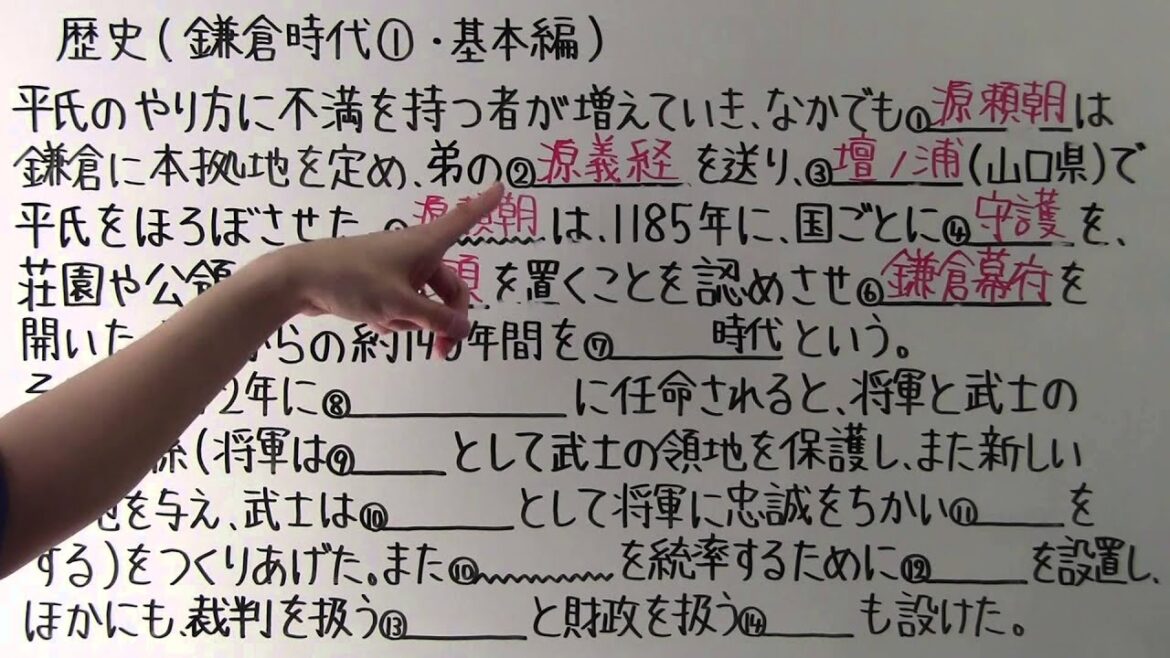 歴史(鎌倉時代①・基本編)
平氏のやり方に不満を持つ者が増えていき、なかでも①源頼朝は
鎌倉に本拠地を定め、弟の②源義経を送り、③壇ノ浦(山口県)で
平氏をほろぼさせた 源頼朝は、1185年に、国ごとに④守護を、
荘園や公領 頭を置くことを認めさせ⑥鎌倉幕府を
開いた からの約140年間を⑦ 時代という。
2年に⑧ に任命されると、将軍と武士の
係(将軍は⑨ として武士の領地を保護し、また新しい
を与え、武士は⑩ として将軍に忠誠をちかい⑪ を
する)をつくりあげた。また⑩ を統率するために⑫ を設置し、
ほかにも、裁判を扱う⑬ と財政を扱う⑭ も設けた。